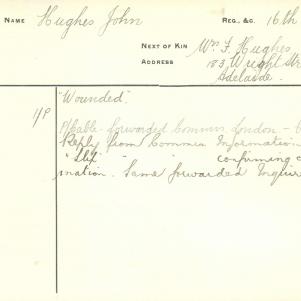 NAME Hughes John REG., &C. 16th
NEXT OF KIN Mrs F. Hughes
ADDRESS 183 Wright Str
Adelaide.
"Wounded".
P/Cable forwarded Commrs London -
Reply from Commrs Information
" " " confirming
mation. Same forwarded Inquir